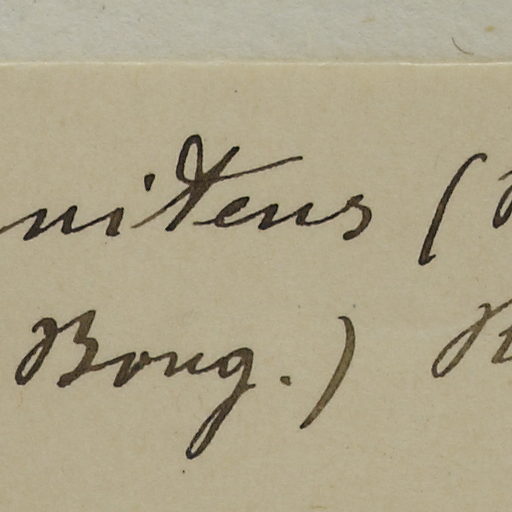 nitens (
Bong.)